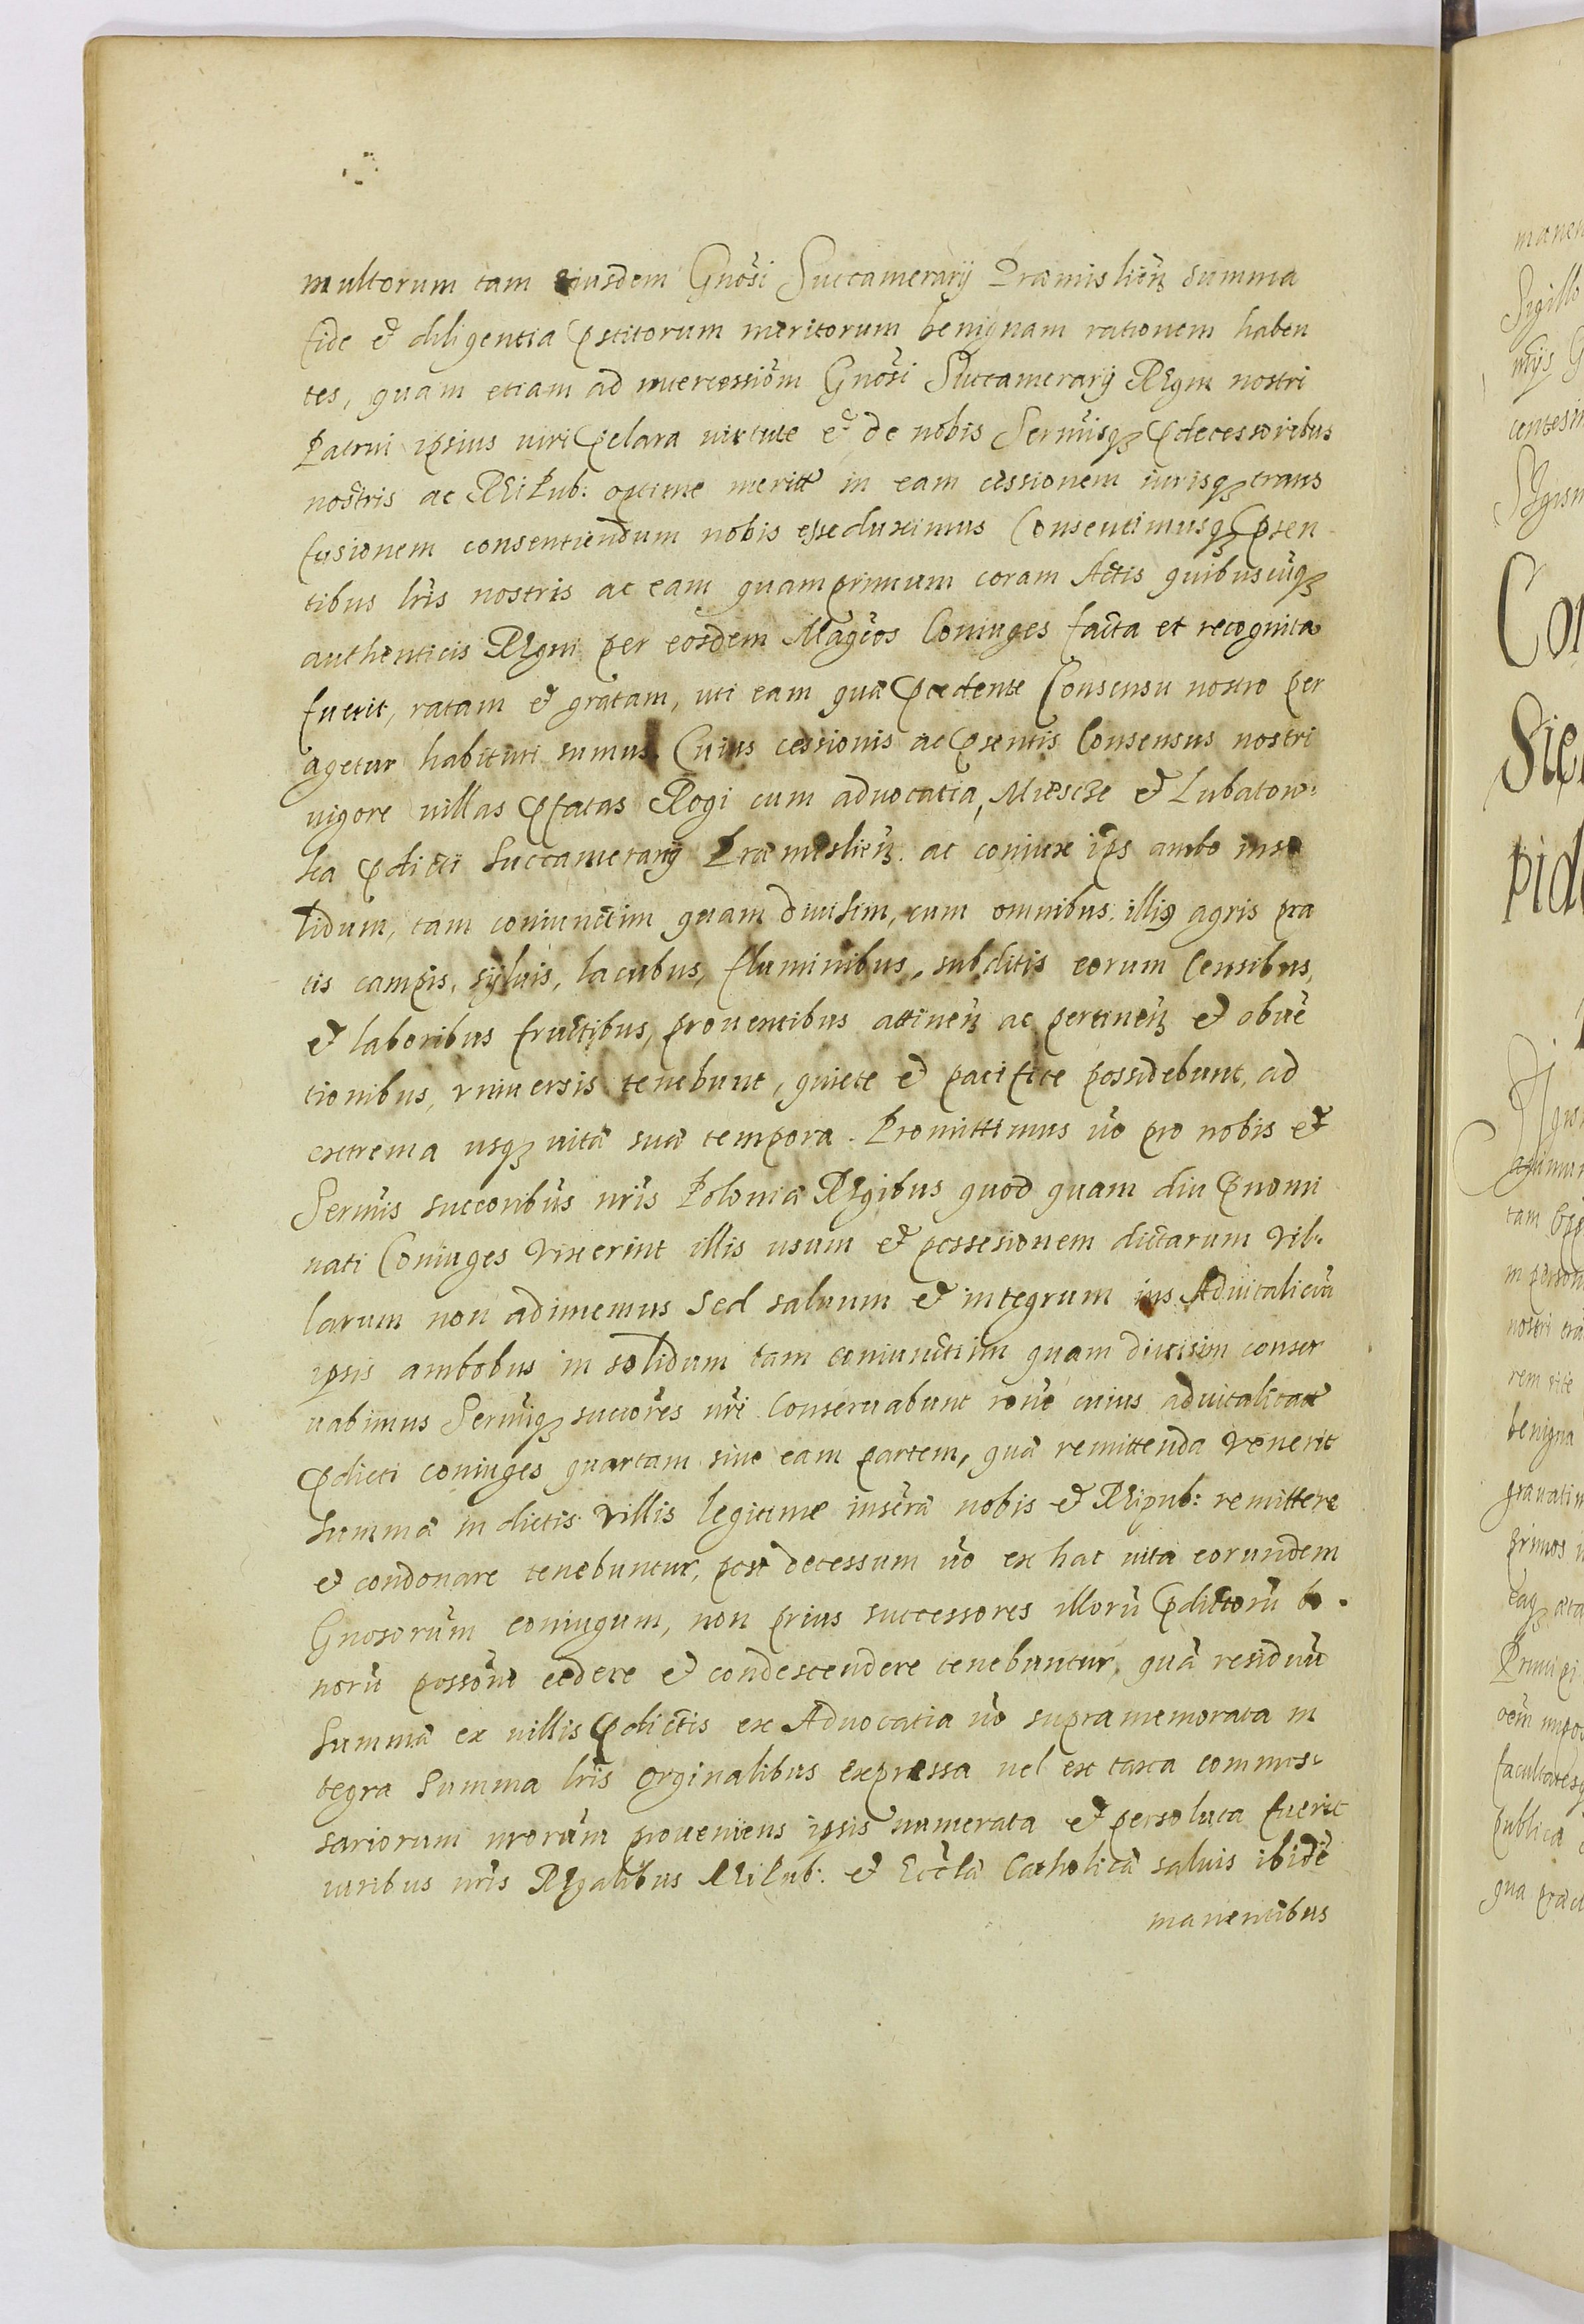 multorum tam eiusdem Gnosi Succamerarij Præmislien summa
fide et diligentia pstitorum meritorum benignam rationem haben
tes, quam etiam ad intercessiom Gnosi Succamerarij Regni nostri
Patrui ipsius viri pclara virtute et de nobis Sermisq pdecessoribus
nostris ac Reipub: optime meriti in eam cessionem iurisq trans
fusionem consentiendum nobis esse duximus Consentimusq psen
tibus lris nostris ac eam quamprimum coram Actis quibuscuq
authenticis Regni per eosdem Magcos Coniuges facta et recognita
fuerit, ratam et gratam, uti eam quæ pcedente Consensu nostro per
agetur habituri sumus. Cuius cessionis ac psentis Consensus nostri
vigore villas pfatas Rogi cum advocatia, Miescze et Lubatow:
ka pdicti Succamerarij Præmislien. ac coniux ips ambo inso
lidum, tam coniunctim quam divisim, cum omnibus illis agris pra
tis campis, sylvis, lacubus, fluminibus, subditis eorum Censibus,
et laboribus fructibus, proventibus attinen ac pertinen et obve
tionibus, vniversis tenebunt, quiete et pacifice possidebunt, ad
extrema usq vitæ suæ tempora. Promittimus vo pro nobis et
Sermis succoribus nris Poloniæ Regibus quod quam diu pnomi
nati Coniuges vixerint illis usum et possesionem dictarum vil:
larum non adimemus Sed salvum et integrum ius Advitaliciu
ipsis ambobus in solidum tam coniunctim quam divisim conser
vabimus Sermiq succores nri Conservabunt rone cuius advitalitatis
pdicti coniuges quartam sive eam partem, quæ remittenda venerit
summæ in dictis villis legitime inscræ nobis et Reipub: remittere
et condonare tenebuntur, post decessum vo ex hac vita eorundem
Gnosorum coniugum, non prius successores illoru pdictoru bo.
noru possone cedere et condescendere tenebuntur, qua residuu
summæ ex villis pdictis ex Advocatia vo supramemorata in
tegra summa lris orginalibus expressa vel ex taxa commis:
sariorum nrorum proveniens ipsis numerata et persoluta fuerit
iuribus nris Regalibus Reipub: et Ecclæ Catholicæ salvis ibide
manentibus